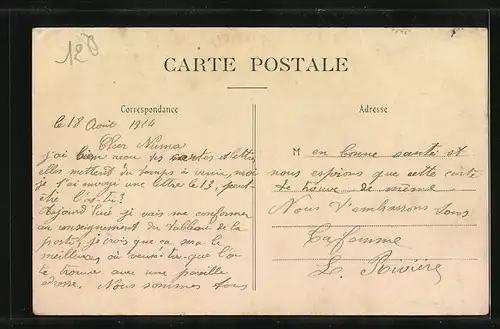 120
CARTE POSTALE
Correspondance
Adresse
le 18 Août 1914
Cher Numa
j'ai bien reçu tes cartes et lettres
elles mettent du temps à venir, moi
je t'ai envoyé une lettre le 13, peut-
être l'as-tu?
Aujourd'hui je vais me conformer
au enseignement du tableau de la
poste, je crois que ça sera le
meilleure, où veux-tu que l'on
te trouve avec une pareille
adresse. Nous sommes tous
M en bonne santé et
nous espérons que cette carte
te trouve de même
Nous t'embrassons tous
Ta femme
L. Rivière